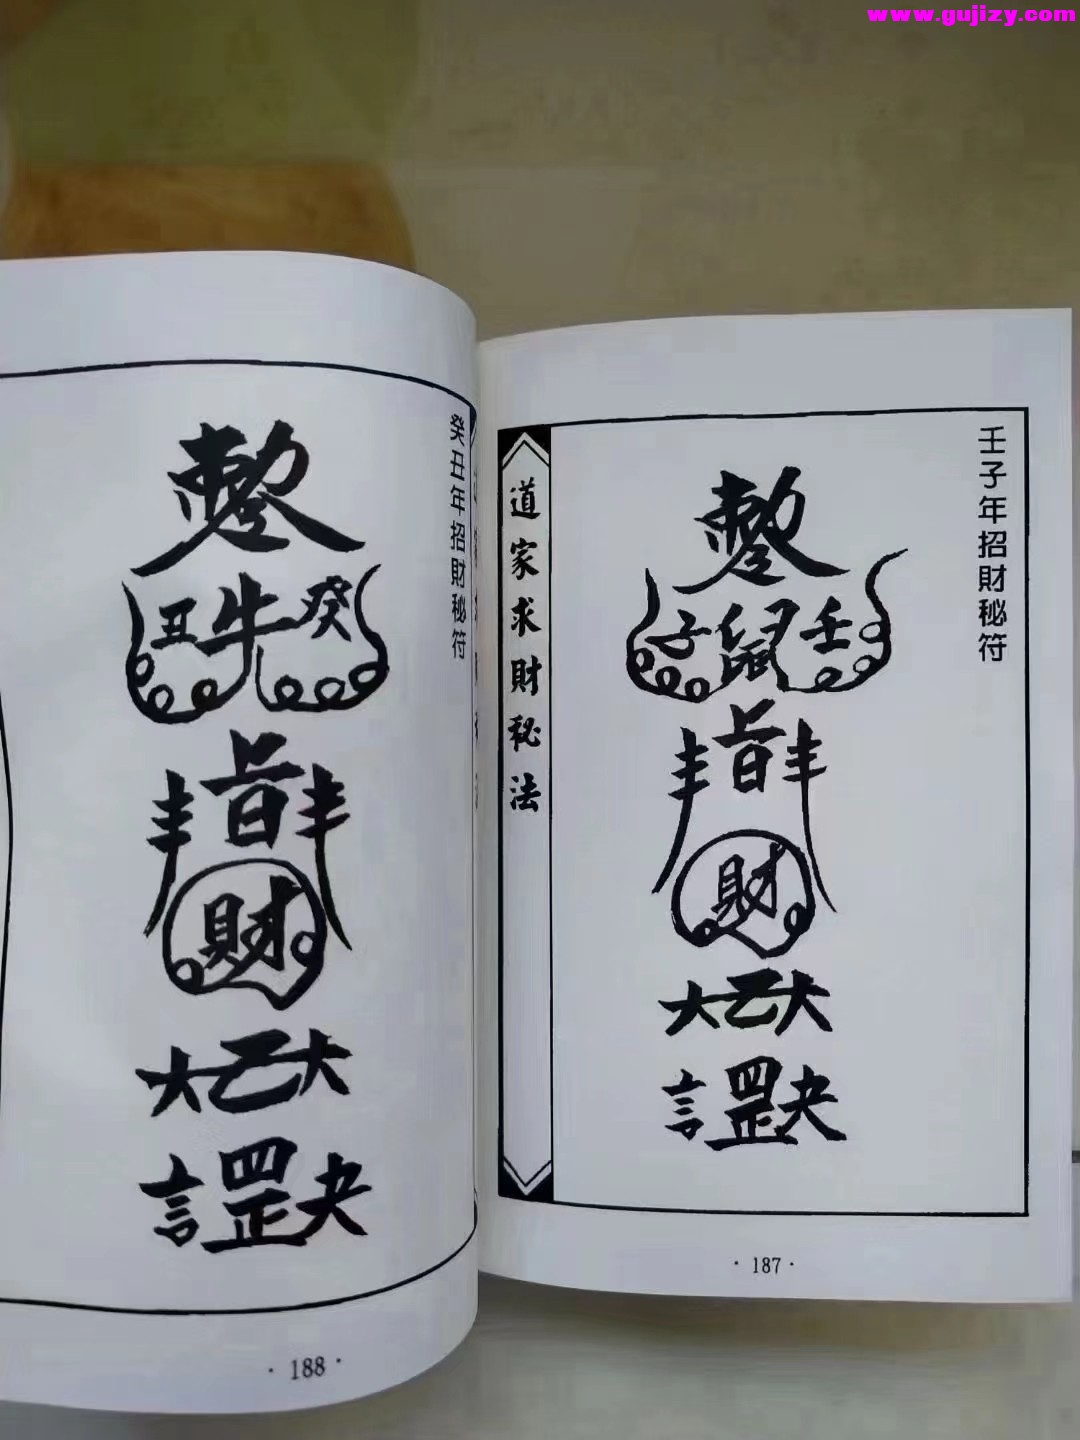 www.gujizy.com
壬子年招財秘符
敕令
子鼠壬
旨
財
大乙大
言罡夬
道家求財秘法
·187·
癸丑年招財秘符
敕令
丑牛癸
旨
財
大乙大
言罡夬
·188·